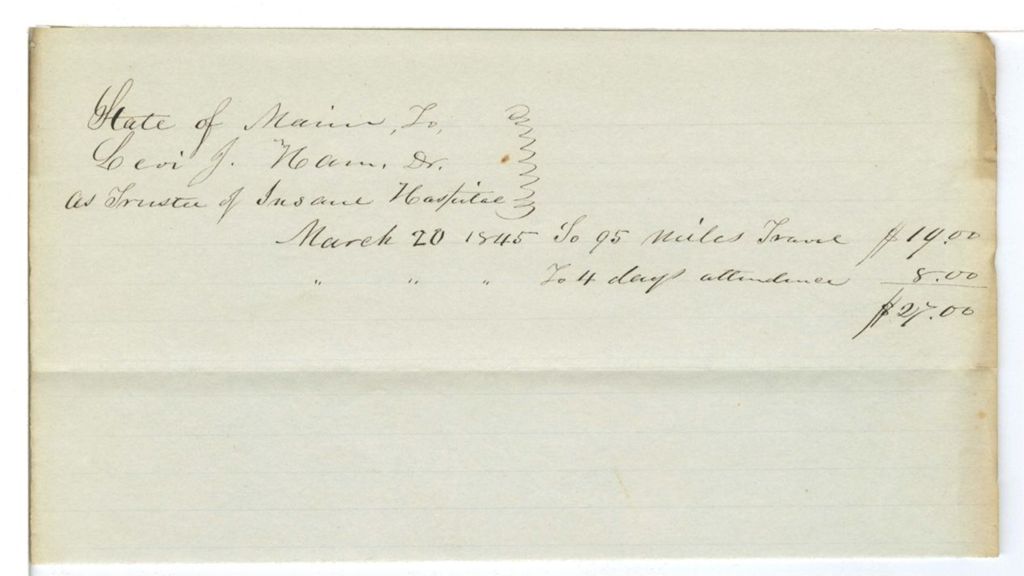 State of Maine, To,
Levi J. Ham, Dr.
as Trustee of Insane Hospital
March 20 1845 To 95 miles Travel $19.00
" " " To 4 days attendance 8.00
$27.00